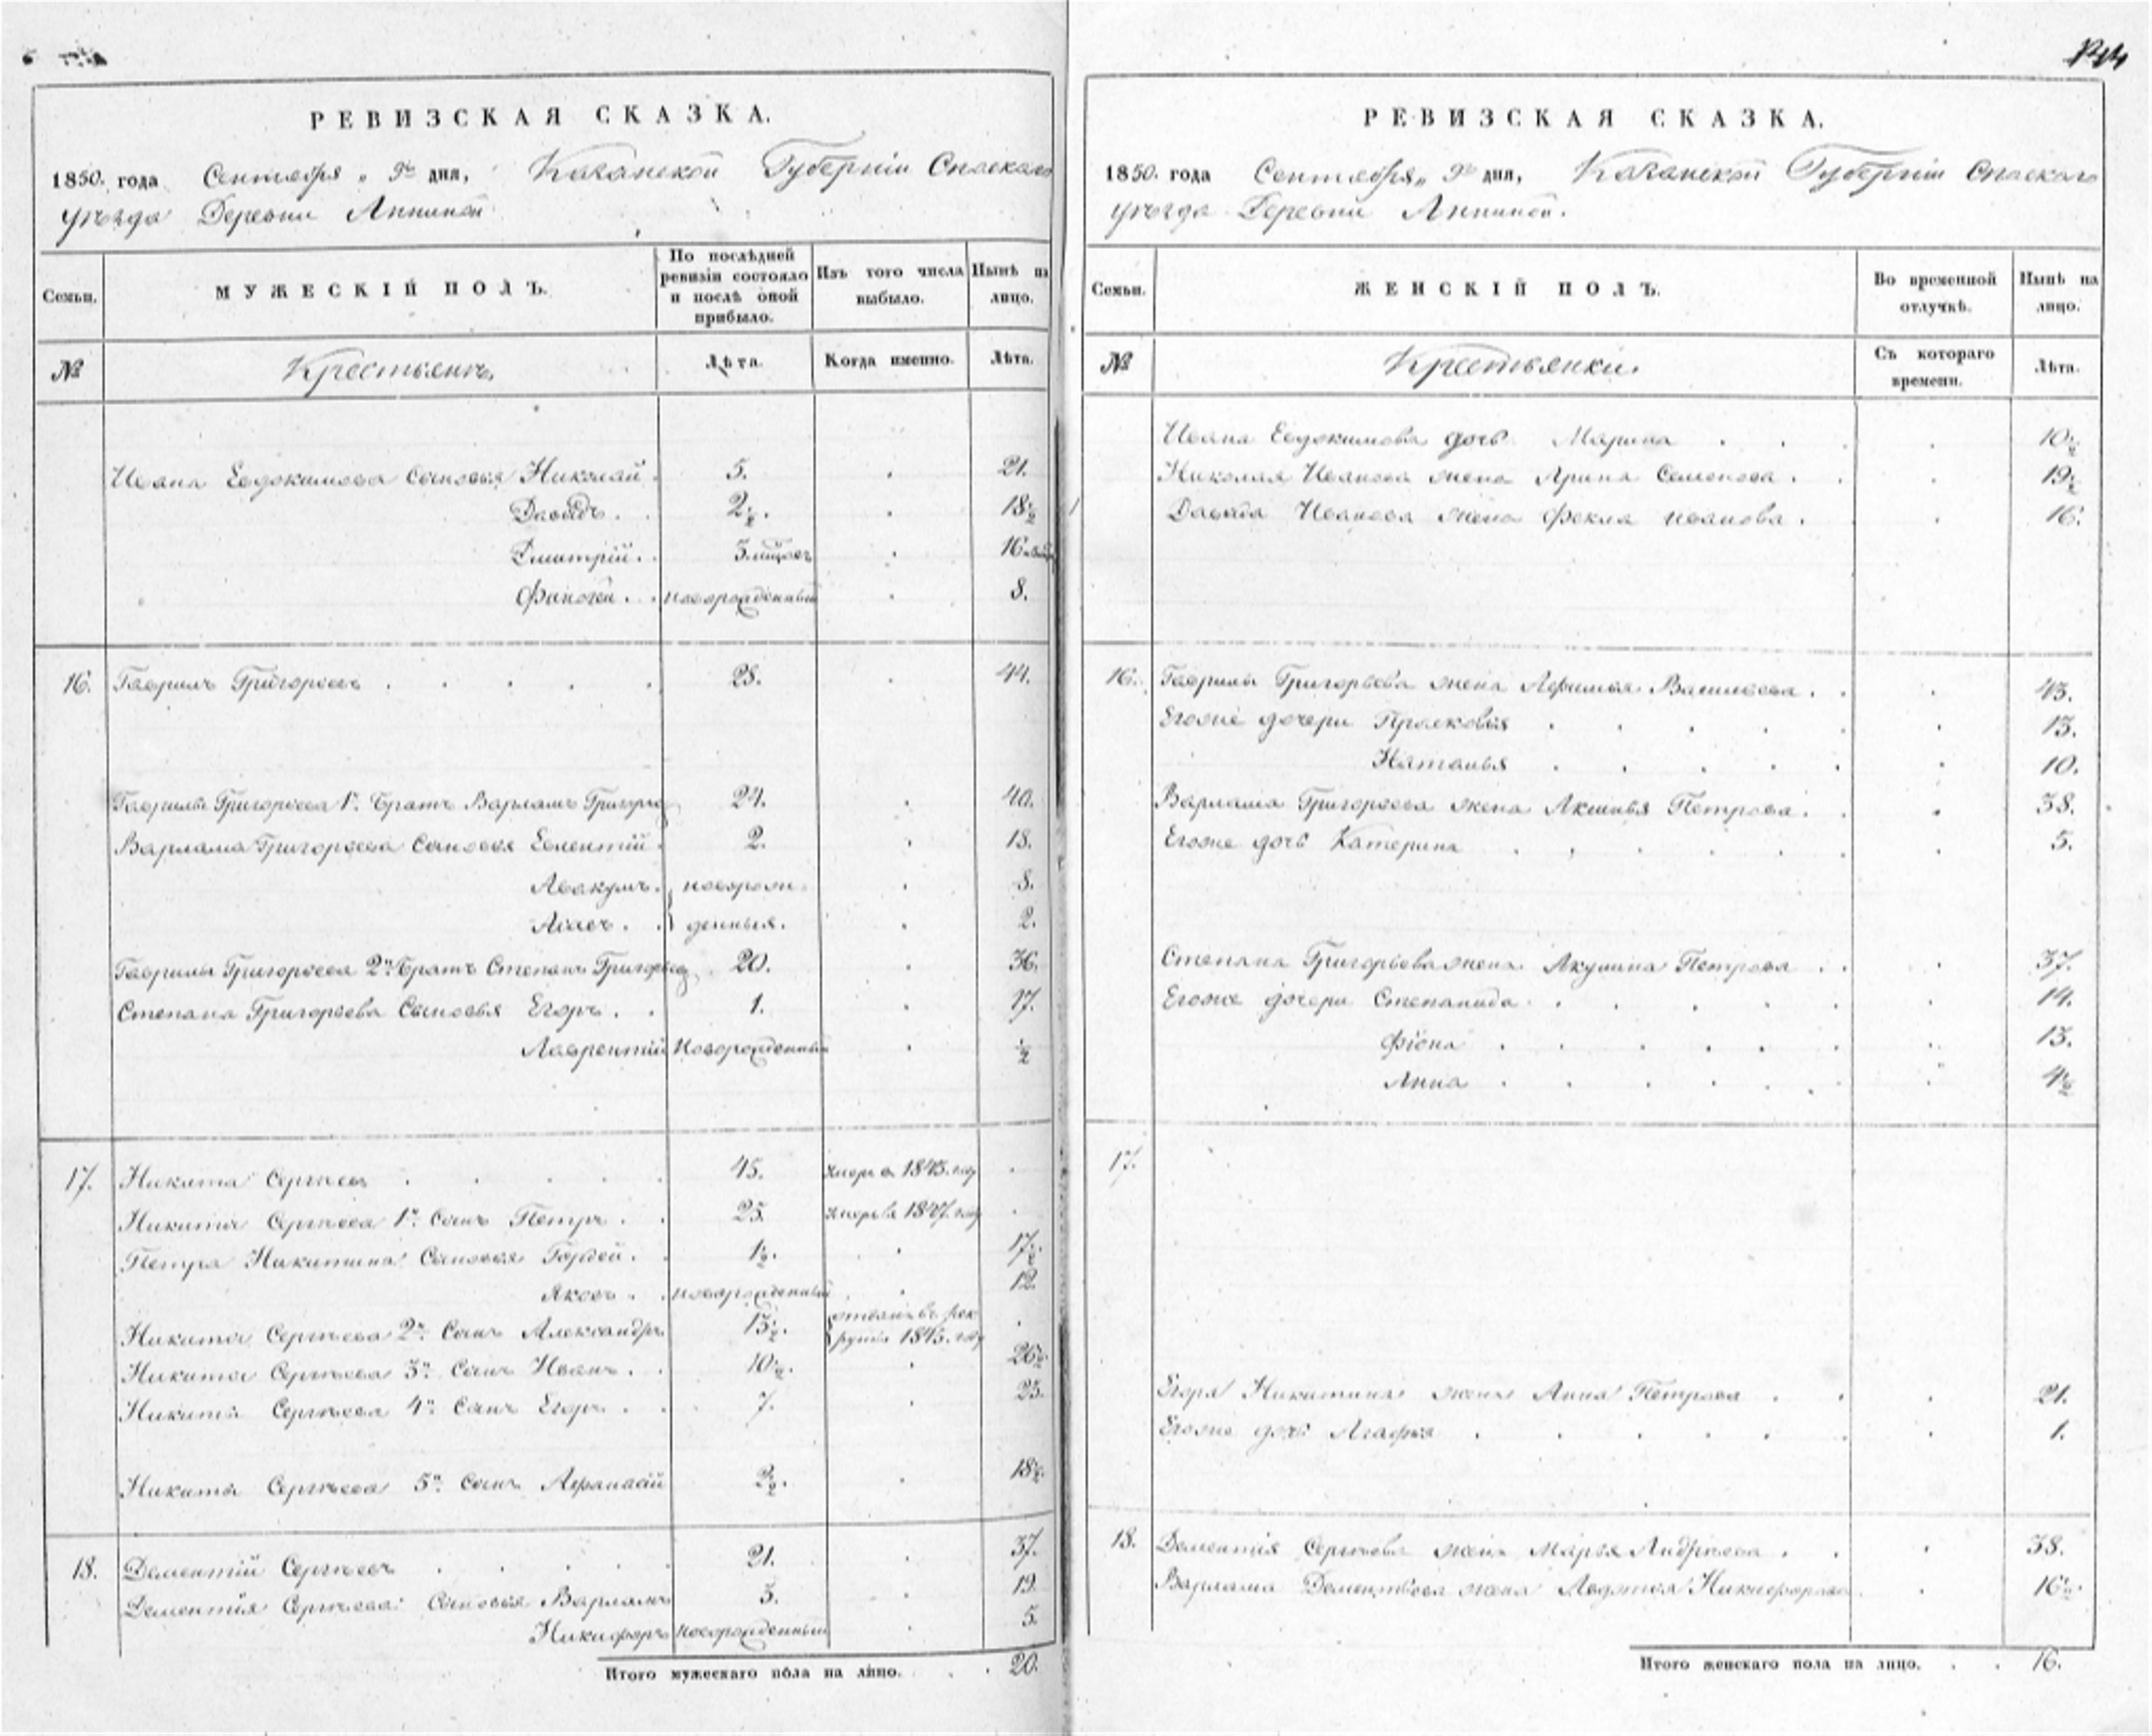 РЕВИЗСКАЯ СКАЗКА.
1850. года Сентября „ 9го дня, Казанской Губерніи Спаскаго
уѣзда Деревни Анниной
Семьи.
МУЖЕСКІЙ ПОЛЪ.
По послѣдней ревизіи состояло и послѣ оной прибыло.
Изъ того числа выбыло.
Нынѣ на лицо.
№
Крестьянъ,
Лѣта.
Когда именно.
Лѣта.
Ивана Евдокимова сыновья Николай . 5. . 21.
Давыдъ . 2½. . 18½
Дмитрій . 3 . 16
. новорожденный . 8.
16. Гаврилъ Григорьевъ . . . . . 28. . 44.
Гаврилы Григорьева 1й. братъ Варламъ Григорьевъ 24. . 40.
Варлама Григорьева сыновья 2. . 18.
Авакумъ . новорож . 8.
. денныя. . 2.
Гаврилы Григорьева 2й. братъ Степанъ Григорьевъ 20. . 36.
Степана Григорьева сыновья Егоръ . . 1. . 17.
Лаврентій новорожденный . ½
17. Никита Сергѣевъ . . . . . 45. умеръ в 1845. году .
Никиты Сергѣева 1й. сынъ Петръ . . 25. умеръ в 1847. году .
Петра Никитина сыновья Гордей . . 1½. . 17½.
. новорожденный . 12.
Никиты Сергѣева 2й. сынъ Александръ 13½. отданъ въ рек
руты 1845. году .
Никиты Сергѣева 3й. сынъ Иванъ . . 10½. . 26½.
Никиты Сергѣева 4й. сынъ Егоръ . . 7. . 23.
Никиты Сергѣева 5й. сынъ Афанасій 2½. . 18½.
18. Дементій Сергѣевъ . . . . 21. . 37.
Дементія Сергѣева сыновья Варламъ 3. . 19.
Никифоръ новорожденный . 5.
Итого мужескаго пола на лицо. . . 20.
РЕВИЗСКАЯ СКАЗКА.
1850. года Сентября „ 9го дня, Казанской Губерніи Спаскаго
уѣзда Деревни Анниной.
Семьи.
ЖЕНСКІЙ ПОЛЪ.
Во временной отлучкѣ.
Нынѣ на лицо.
№
Крестьянки.
Съ котораго времени.
Лѣта.
Ивана Евдокимова дочь Марина . . . 10½
Николая Иванова жена Арина Семенова . . . 19½
Давыда Иванова жена Фекла Иванова . . 16.
16. Гаврилы Григорьева жена Афимья Васильева . . . 43.
Егоже дочери Прасковья . . . . . . 13.
Наталья . . . . . . 10.
Варлама Григорьева жена Аксинья Петрова . . . 38.
Егоже дочь Катерина . . . . . . . 5.
Степана Григорьева жена Акулина Петрова . . . 37.
Егоже дочери Степанида . . . . . . 14.
Фіона . . . . . . . 13.
Анна . . . . . . . 4½
17.
Егора Никитина жена Анна Петрова . . . 21.
Егоже дочь Агафья . . . . . . . 1.
18. Дементія Сергѣева жена Марья Андрѣева . . . 38.
Варлама Дементьева жена Авдотья Никифорова . . 16½.
Итого женскаго пола на лицо. . . 16.